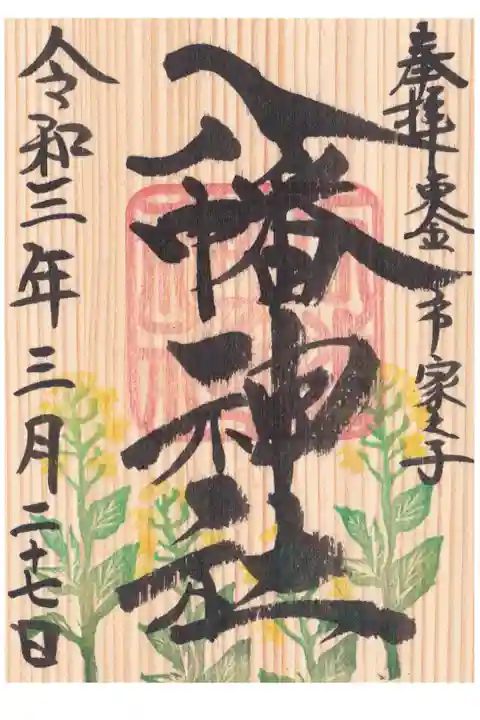 奉拝 東金市家之子
八幡神社
令和三年三月二十七日